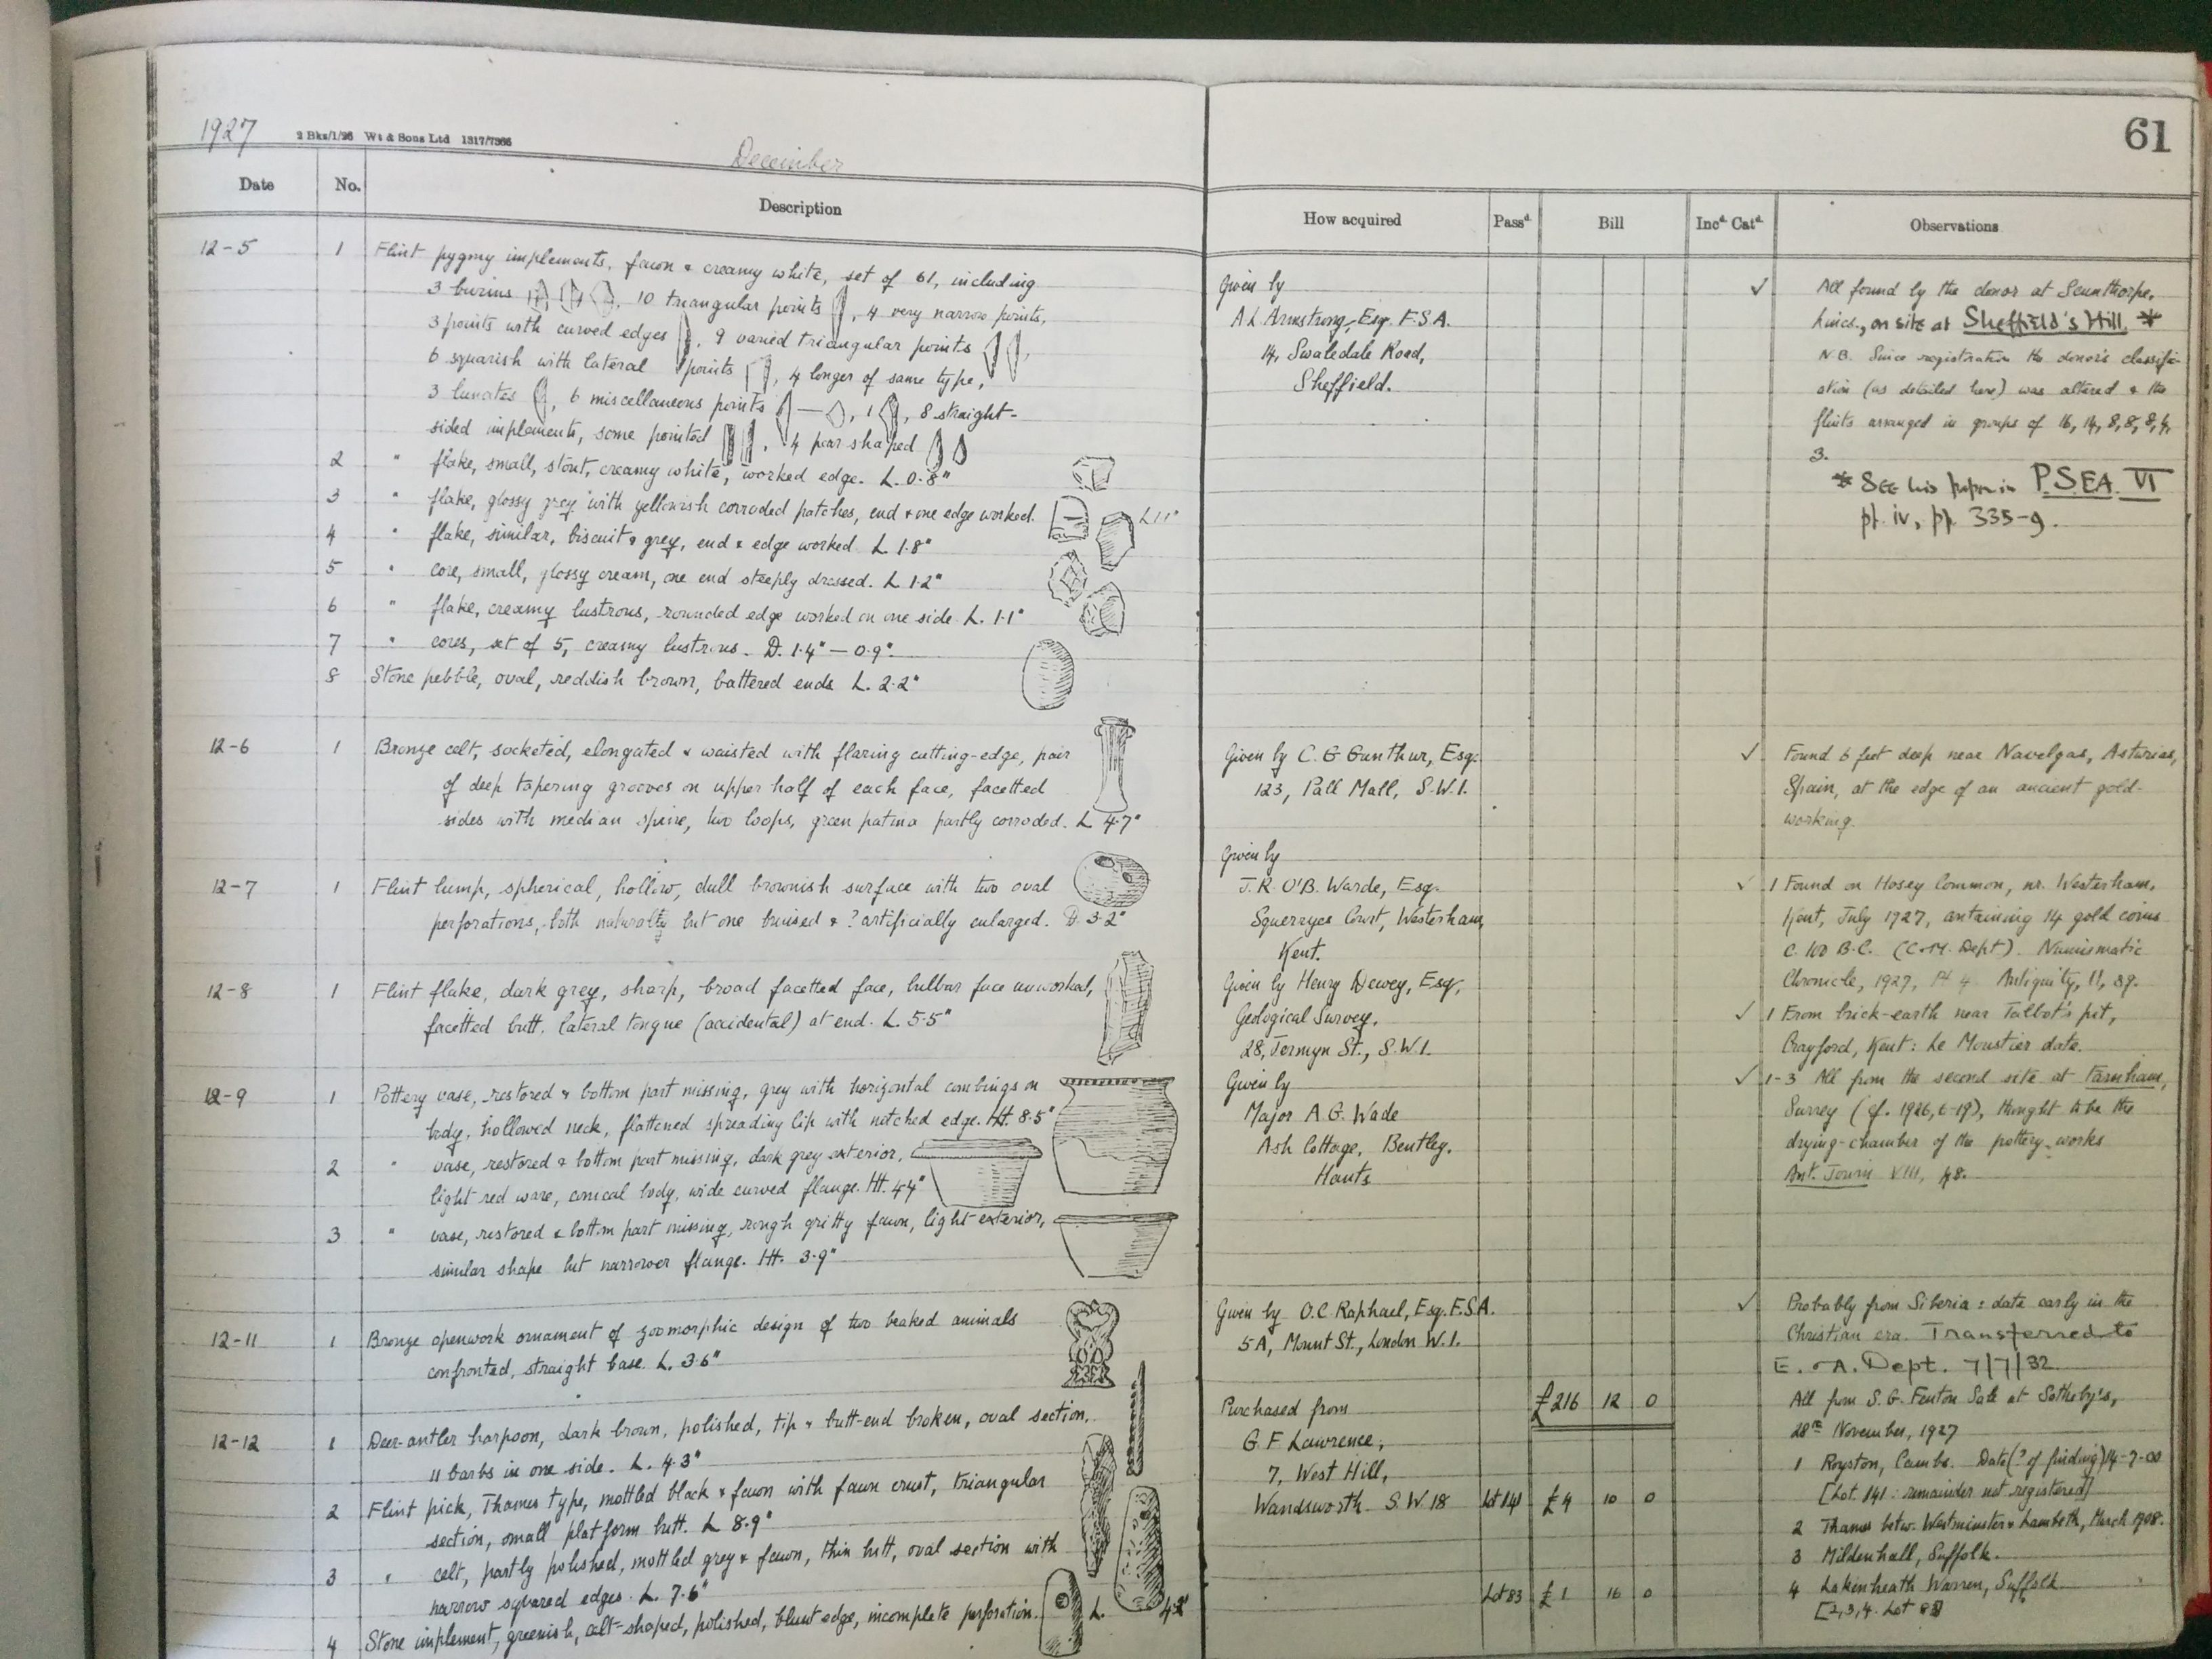 1927
2 Bks/1/26 Wt & Sons Ltd 1317/7366
December
61
Date No. Description
How acquired Passd. Bill Incd. Catd. Observations
12-5 1 Flint pygmy implements, fawn & creamy white, set of 61, including
3 burins, 10 triangular points, 4 very narrow points,
3 points with curved edges, 9 varied triangular points
6 squarish with lateral points, 4 longer of same type,
3 lunates, 6 miscellaneous points — , 1, 8 straight-
sided implements, some pointed, 4 pear shaped
2 " flake, small, stout, creamy white, worked edge. L. 0.8"
3 " flake, glossy grey with yellowish corroded patches, end & one edge worked. L 1.1"
4 " flake, similar, biscuit & grey, end & edge worked. L 1.8"
5 " core, small, glossy cream, one end steeply dressed. L 1.2"
6 " flake, creamy lustrous, rounded edge worked on one side. L. 1.1"
7 " cores, set of 5, creamy lustrous. D. 1.4" — 0.9"
8 Stone pebble, oval, reddish brown, battered ends. L. 2.2"
Given by
A L Armstrong, Esq. F.S.A.
14, Swaledale Road,
Sheffield.
✓ All found by the donor at Scunthorpe,
Lincs., on site at Sheffield's Hill. *
N.B. Since registration the donor's classifi-
ation (as detailed here) was altered & the
flints arranged in groups of 16, 14, 8, 8, 8, 4,
3.
* See his paper in P.S.E.A. VI
pt. iv, pp 335-9.
12-6 1 Bronze celt, socketed, elongated & waisted with flaring cutting-edge, pair
of deep tapering grooves on upper half of each face, facetted
sides with median spine, two loops, green patina partly corroded. L 4.7"
Given by C. G Gunthur, Esq.
123, Pall Mall, S.W.1.
✓ Found 6 feet deep near Navelgas, Asturias,
Spain, at the edge of an ancient gold-
working.
12-7 1 Flint lump, spherical, hollow, dull brownish surface with two oval
perforations, both natural but one bruised & ? artificially enlarged. D. 3.2"
Given by
J. R. O'B. Warde, Esq.
Squerryes Court, Westerham,
Kent.
✓ 1 Found on Hosey Common, nr. Westerham,
Kent, July 1927, containing 14 gold coins
c. 100 B.C. (C. & M. Dept). Numismatic
Chronicle, 1927, Pt 4 Antiquity, 11, 89.
12-8 1 Flint flake, dark grey, sharp, broad facetted face, bulbar face unworked,
facetted butt, lateral tongue (accidental) at end. L. 5.5"
Given by Henry Dewey, Esq,
Geological Survey,
28, Jermyn St., S.W.1.
✓ 1 From brick-earth near Talbot's pit,
Crayford, Kent: Le Moustier date.
12-9 1 Pottery vase, restored & bottom part missing, grey with horizontal combings on
body, hollowed neck, flattened spreading lip with notched edge. Ht. 8.5"
2 " vase, restored & bottom part missing, dark grey exterior,
light red ware, conical body, wide curved flange. Ht. 4.4"
3 " vase, restored & bottom part missing, rough gritty fawn, light exterior,
similar shape but narrower flange. Ht. 3.9"
Given by
Major A. G. Wade
Ash Cottage, Bentley.
Hants
✓ 1-3 All from the second site at Farnham,
Surrey (cf. 1926, 6-19), thought to be the
drying-chamber of the pottery works
Ant. Journ VIII, 48.
12-11 1 Bronze openwork ornament of zoomorphic design of two beaked animals
confronted, straight base. L. 3.6"
Given by O.C Raphael, Esq. F.S.A.
5A, Mount St., London W.1.
✓ Probably from Siberia: date early in the
Christian era. Transferred to
E. & A. Dept. 7/7/32
12-12 1 Deer-antler harpoon, dark brown, polished, tip & butt-end broken, oval section,
11 barbs in one side. L. 4.3"
2 Flint pick, Thames type, mottled black & fawn with fawn crust, triangular
section, small platform butt. L 8.9"
3 " celt, partly polished, mottled grey & fawn, thin butt, oval section with
narrow squared edges. L. 7.6"
4 Stone implement, greenish, celt-shaped, polished, blunt edge, incomplete perforation. L.
Purchased from £216 12 0
G. F Lawrence,
7, West Hill,
Wandsworth S.W 18 Lot 141 £4 10 0
Lot 83 £1 16 0
All from S. G. Fenton Sale at Sotheby's,
28th November, 1927
1 Royston, Cambs. Date (? of finding) 14-7-00
[Lot. 141: remainder not registered]
2 Thames betw. Westminster & Lambeth, March 1908.
3 Mildenhall, Suffolk.
4 Lakenheath Warren, Suffolk.
[2,3,4. Lot 83]